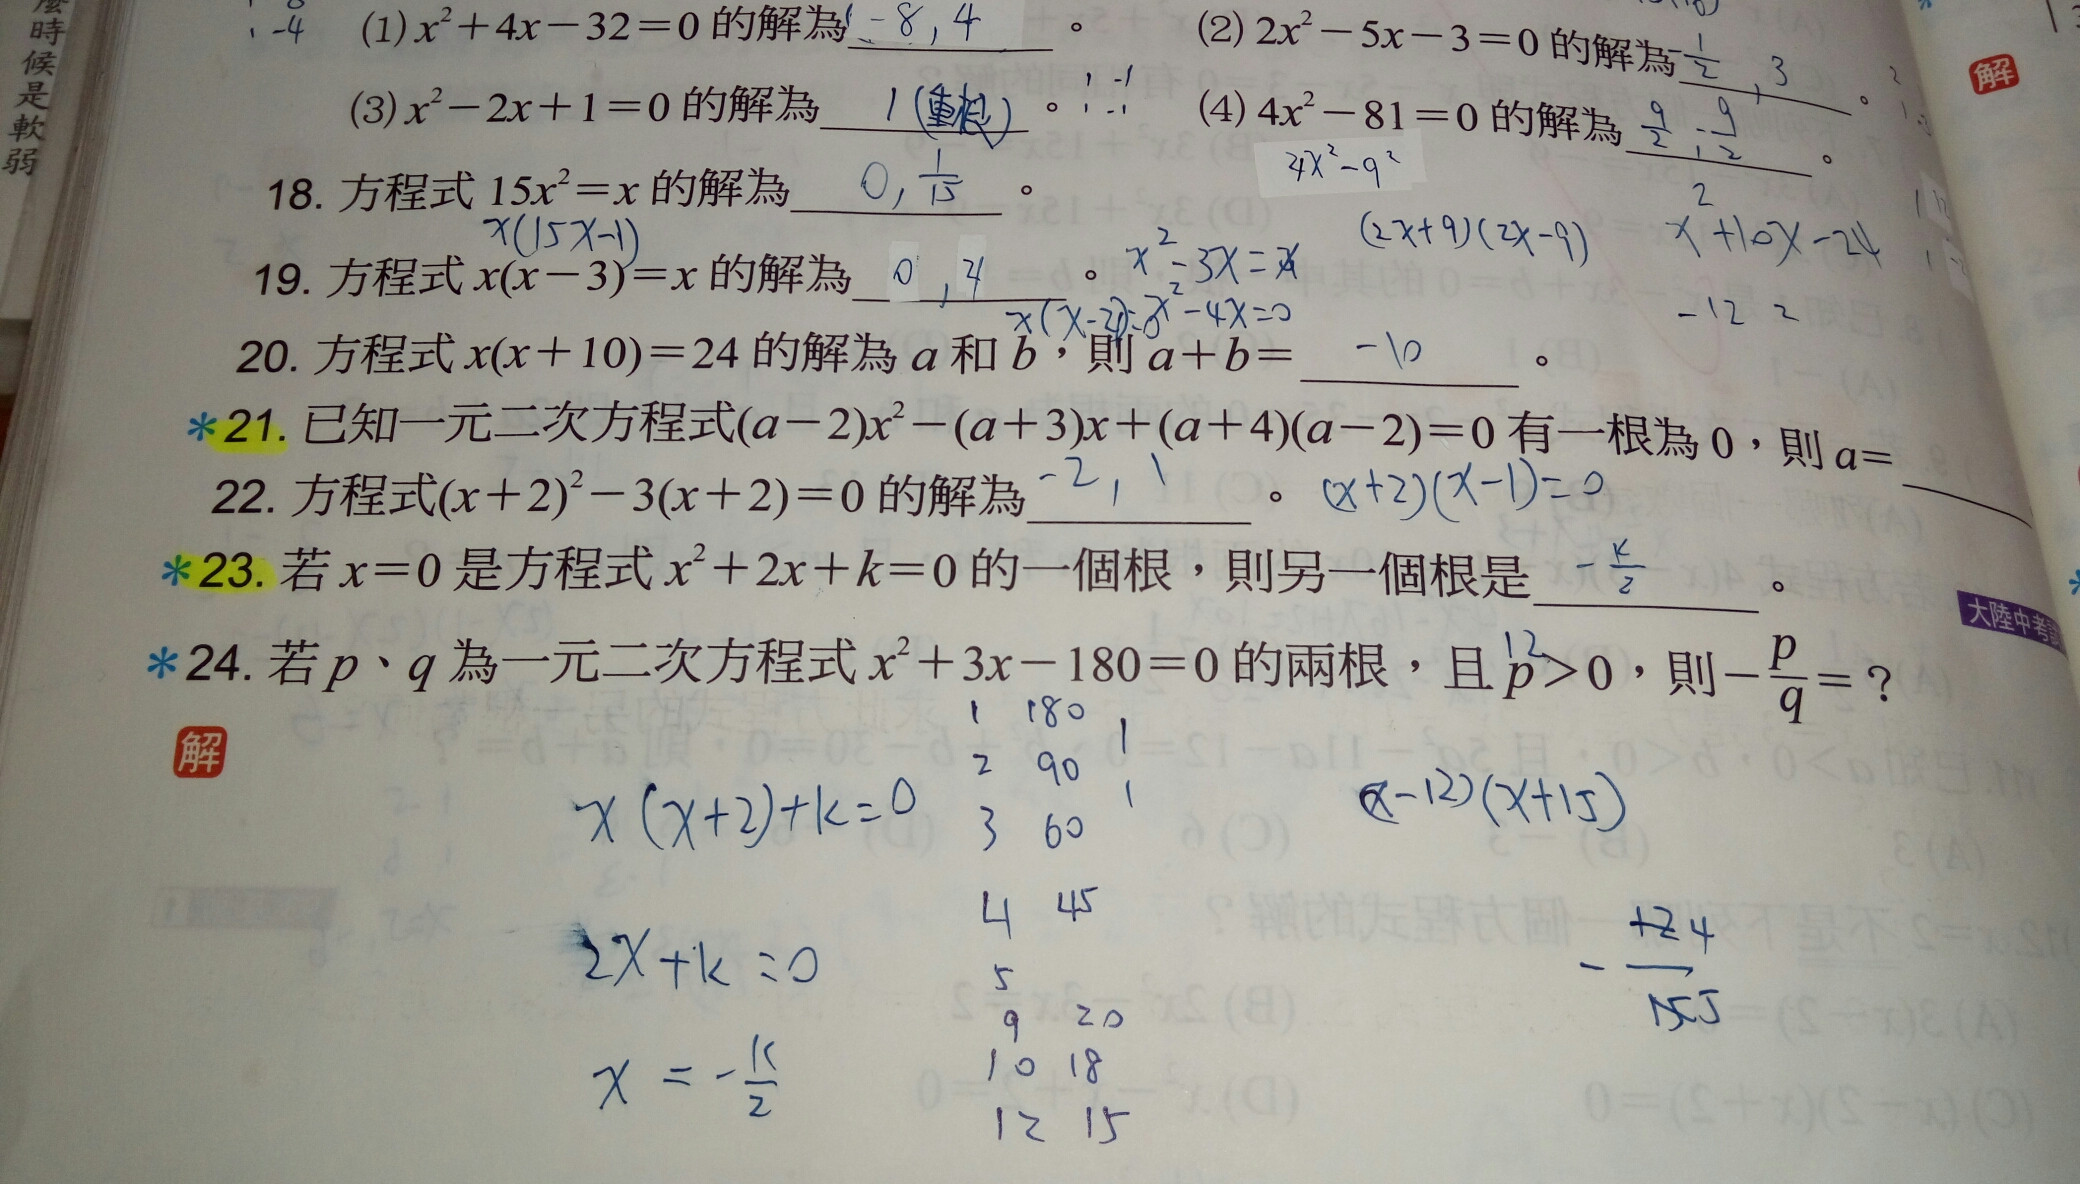 麼時候是軟弱
-4
(1) x²+4x-32=0 的解為 -8, 4 。
(2) 2x²-5x-3=0 的解為 -1/2, 3 。
解
(3) x²-2x+1=0 的解為 1(重根) 。 1 -1
1 -1
(4) 4x²-81=0 的解為 9/2, -9/2 。
4x²-9²
18. 方程式 15x²=x 的解為 0, 1/15 。
x(15x-1)
(2x+9)(2x-9)
x²+10x-24
-12 2
19. 方程式 x(x-3)=x 的解為 0, 4 。 x²-3x=x
x(x-4)=0 x²-4x=0
20. 方程式 x(x+10)=24 的解為 a 和 b,則 a+b= -10 。
*21. 已知一元二次方程式(a-2)x²-(a+3)x+(a+4)(a-2)=0 有一根為 0,則 a=
22. 方程式(x+2)²-3(x+2)=0 的解為 -2, 1 。 (x+2)(x-1)=0
*23. 若 x=0 是方程式 x²+2x+k=0 的一個根,則另一個根是 -k/2 。
大陸中考
12
*24. 若 p、q 為一元二次方程式 x²+3x-180=0 的兩根,且 p>0,則-p/q=?
解
x(x+2)+k=0
2x+k=0
x=-k/2
1 180
2 90
3 60
4 45
5
9 20
10 18
12 15
1
1
(x-12)(x+15)